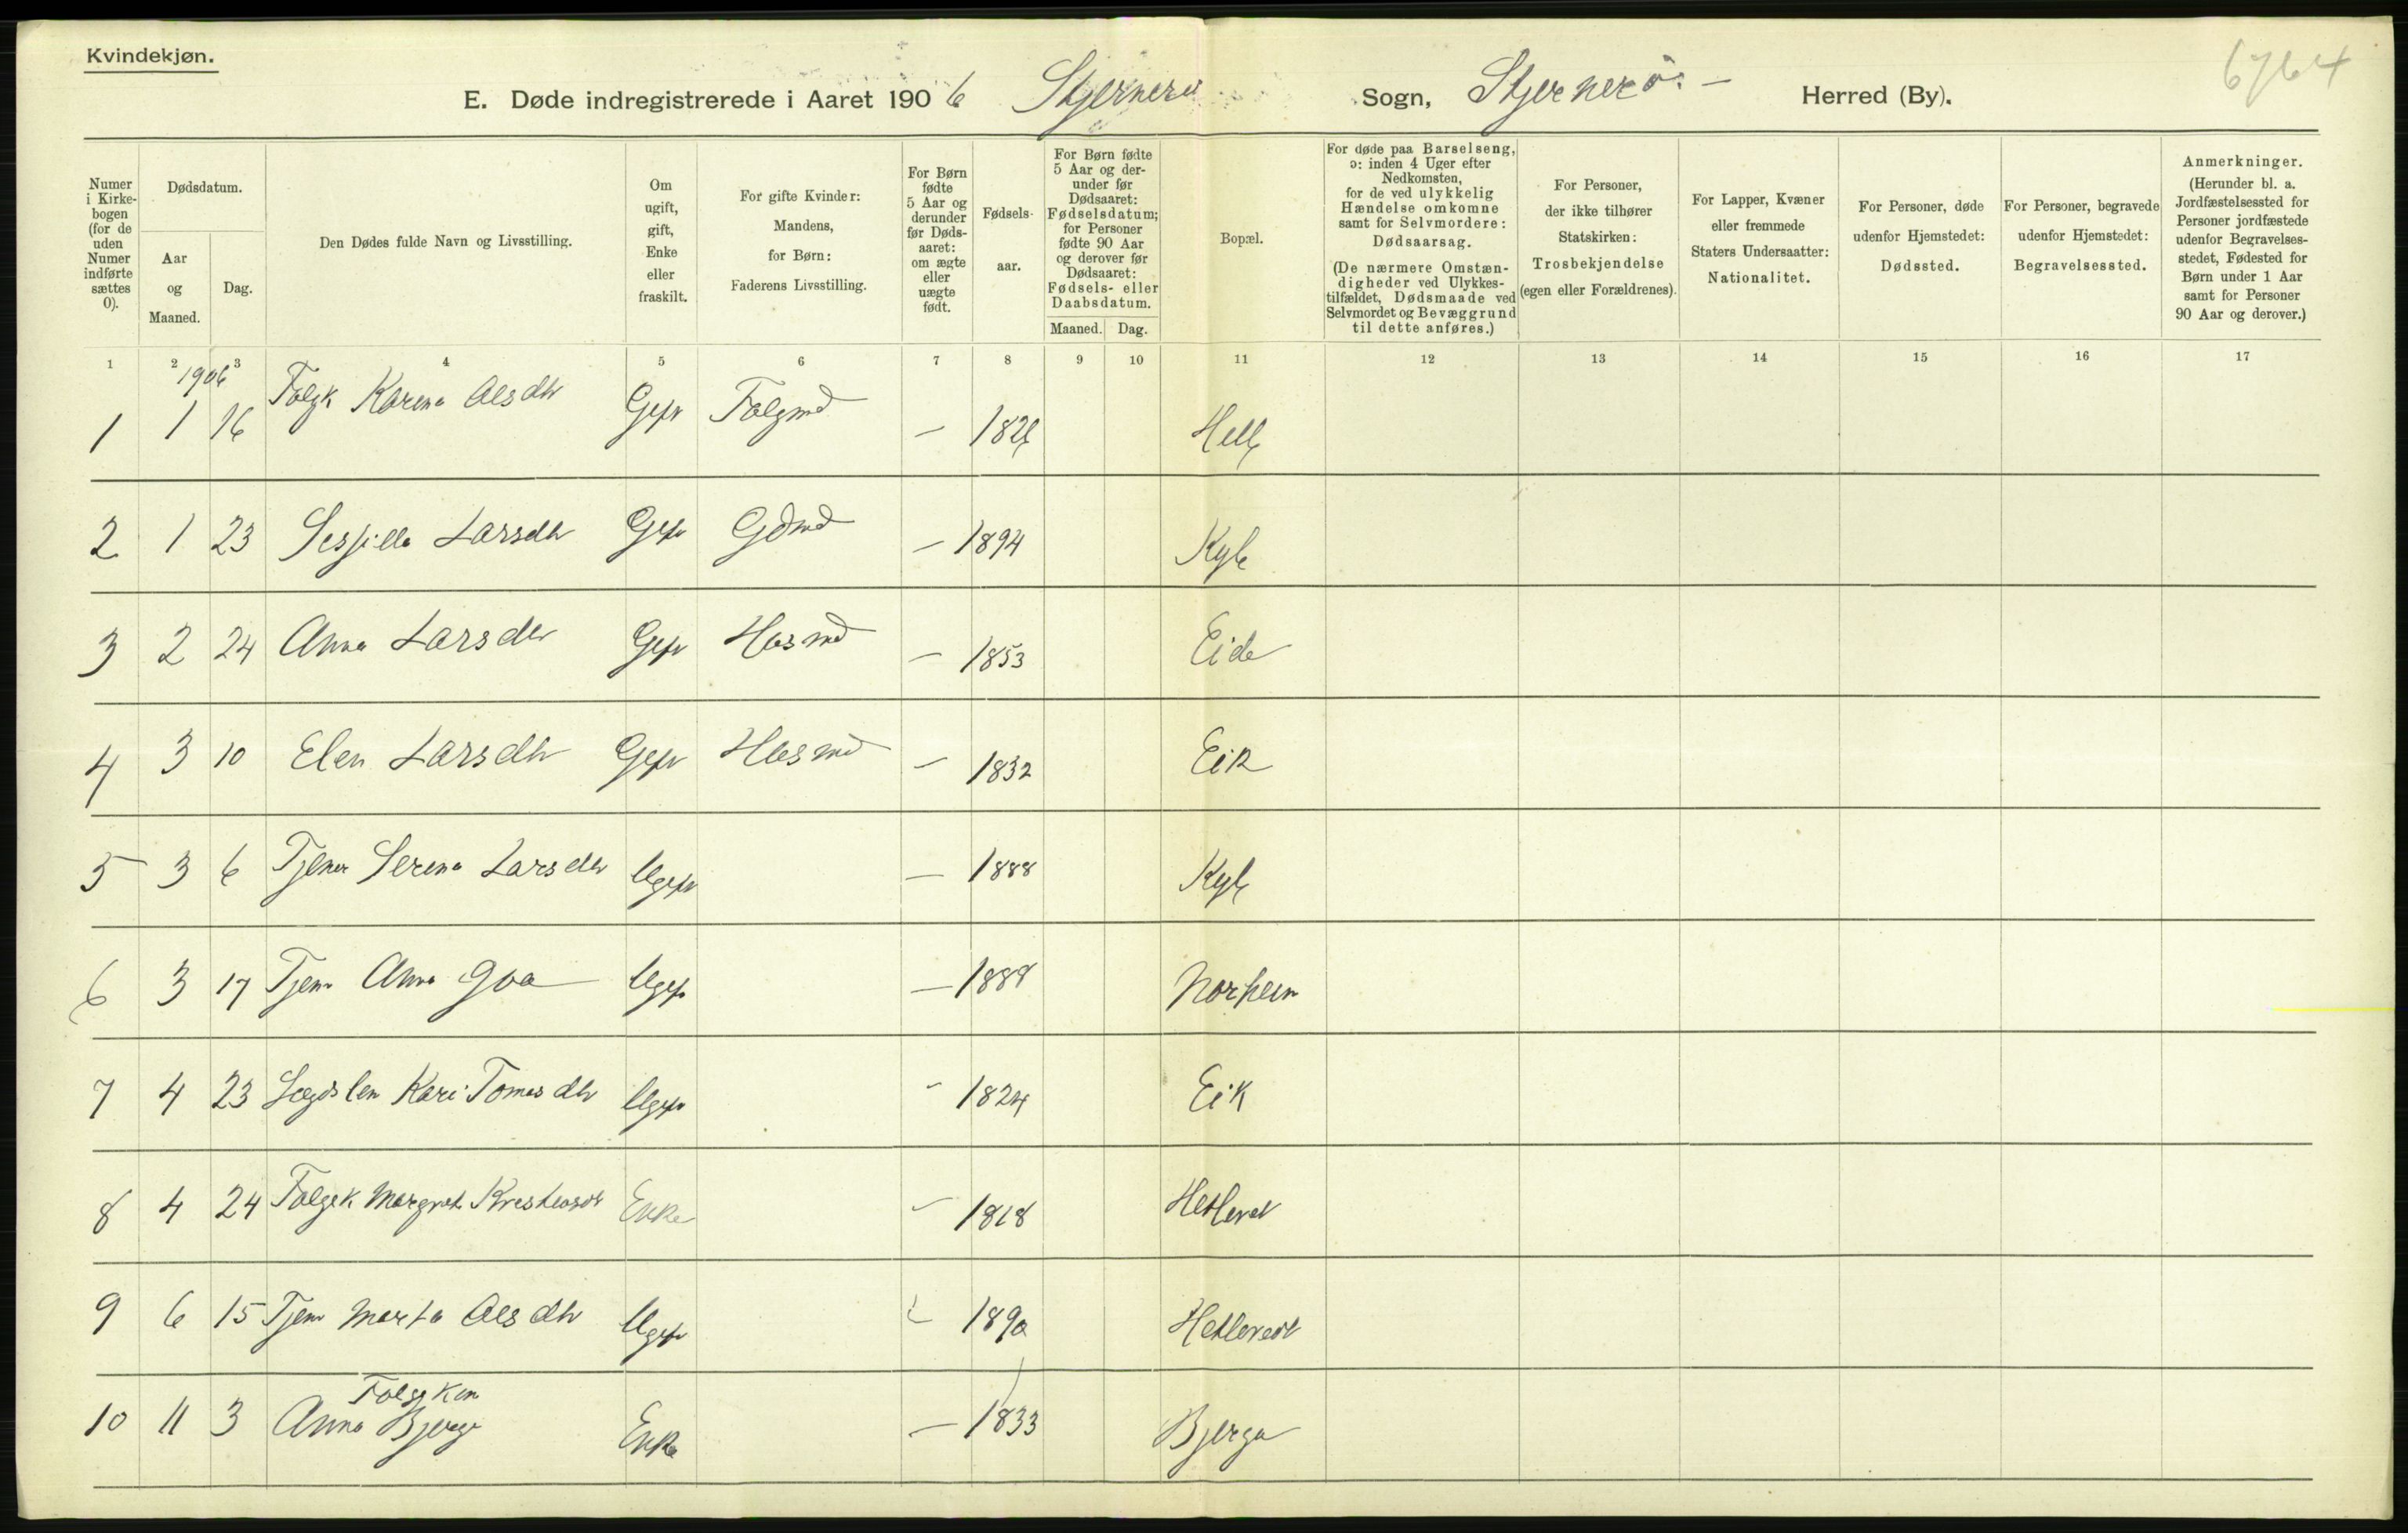 Kvindekjøn.
6764
E. Døde indregistrerede i Aaret 1906 Stjernerö Sogn, Stjernerö. — Herred (By).
Numer i Kirke-bogen (for de uden Numer indførte sættes 0).
Dødsdatum.
Aar og Maaned.
Dag.
Den Dødes fulde Navn og Livsstilling.
Om ugift, gift, Enke eller fraskilt.
For gifte Kvinder: Mandens, for Børn: Faderens Livsstilling.
For Børn fødte 5 Aar og derunder før Døds-aaret: om ægte eller uægte født.
Fødsels-aar.
For Børn fødte 5 Aar og der-under før Dødsaaret: Fødselsdatum; for Personer fødte 90 Aar og derover før Dødsaaret: Fødsels- eller Daabsdatum.
Maaned. Dag.
Bopæl.
For døde paa Barselseng, ɔ: inden 4 Uger efter Nedkomsten, for de ved ulykkelig Hændelse omkomne samt for Selvmordere: Dødsaarsag. (De nærmere Omstæn-digheder ved Ulykkes-tilfældet, Dødsmaade ved Selvmordet og Bevæggrund til dette anføres.)
For Personer, der ikke tilhører Statskirken: Trosbekjendelse (egen eller Forældrenes).
For Lapper, Kvæner eller fremmede Staters Undersaatter: Nationalitet.
For Personer, døde udenfor Hjemstedet: Dødssted.
For Personer, begravede udenfor Hjemstedet: Begravelsessted.
Anmerkninger. (Herunder bl. a. Jordfæstelsessted for Personer jordfæstede udenfor Begravelses-stedet, Fødested for Børn under 1 Aar samt for Personer 90 Aar og derover.)
1 2 3 4 5 6 7 8 9 10 11 12 13 14 15 16 17
1906
1 1 16 Folgk Karena Olsdtr Gift Folgmd — Helle
2 1 23 Larsdtr Gift Gdmd — 1894 Kyle
3 2 24 Anna Larsdtr Gift Husmd — 1853 Eide
4 3 10 Elen Larsdtr Gift Husmd — 1832 Eik
5 3 6 Tjener Serena Larsdtr Ugift — 1888 Kyle
6 3 17 Tjen Anna Goa Ugift — 1888 Norheim
7 4 23 Lægdslem Kari Tomasdtr Ugift - 1824 Eik
8 4 24 Folgek Margrete Enke - 1818 Hetlevet
9 6 15 Tjen Marta Olsdtr Ugift 1890 Hetlevedt
Folgekon
10 11 3 Anna Bjerge Enke — 1833 Bjerga